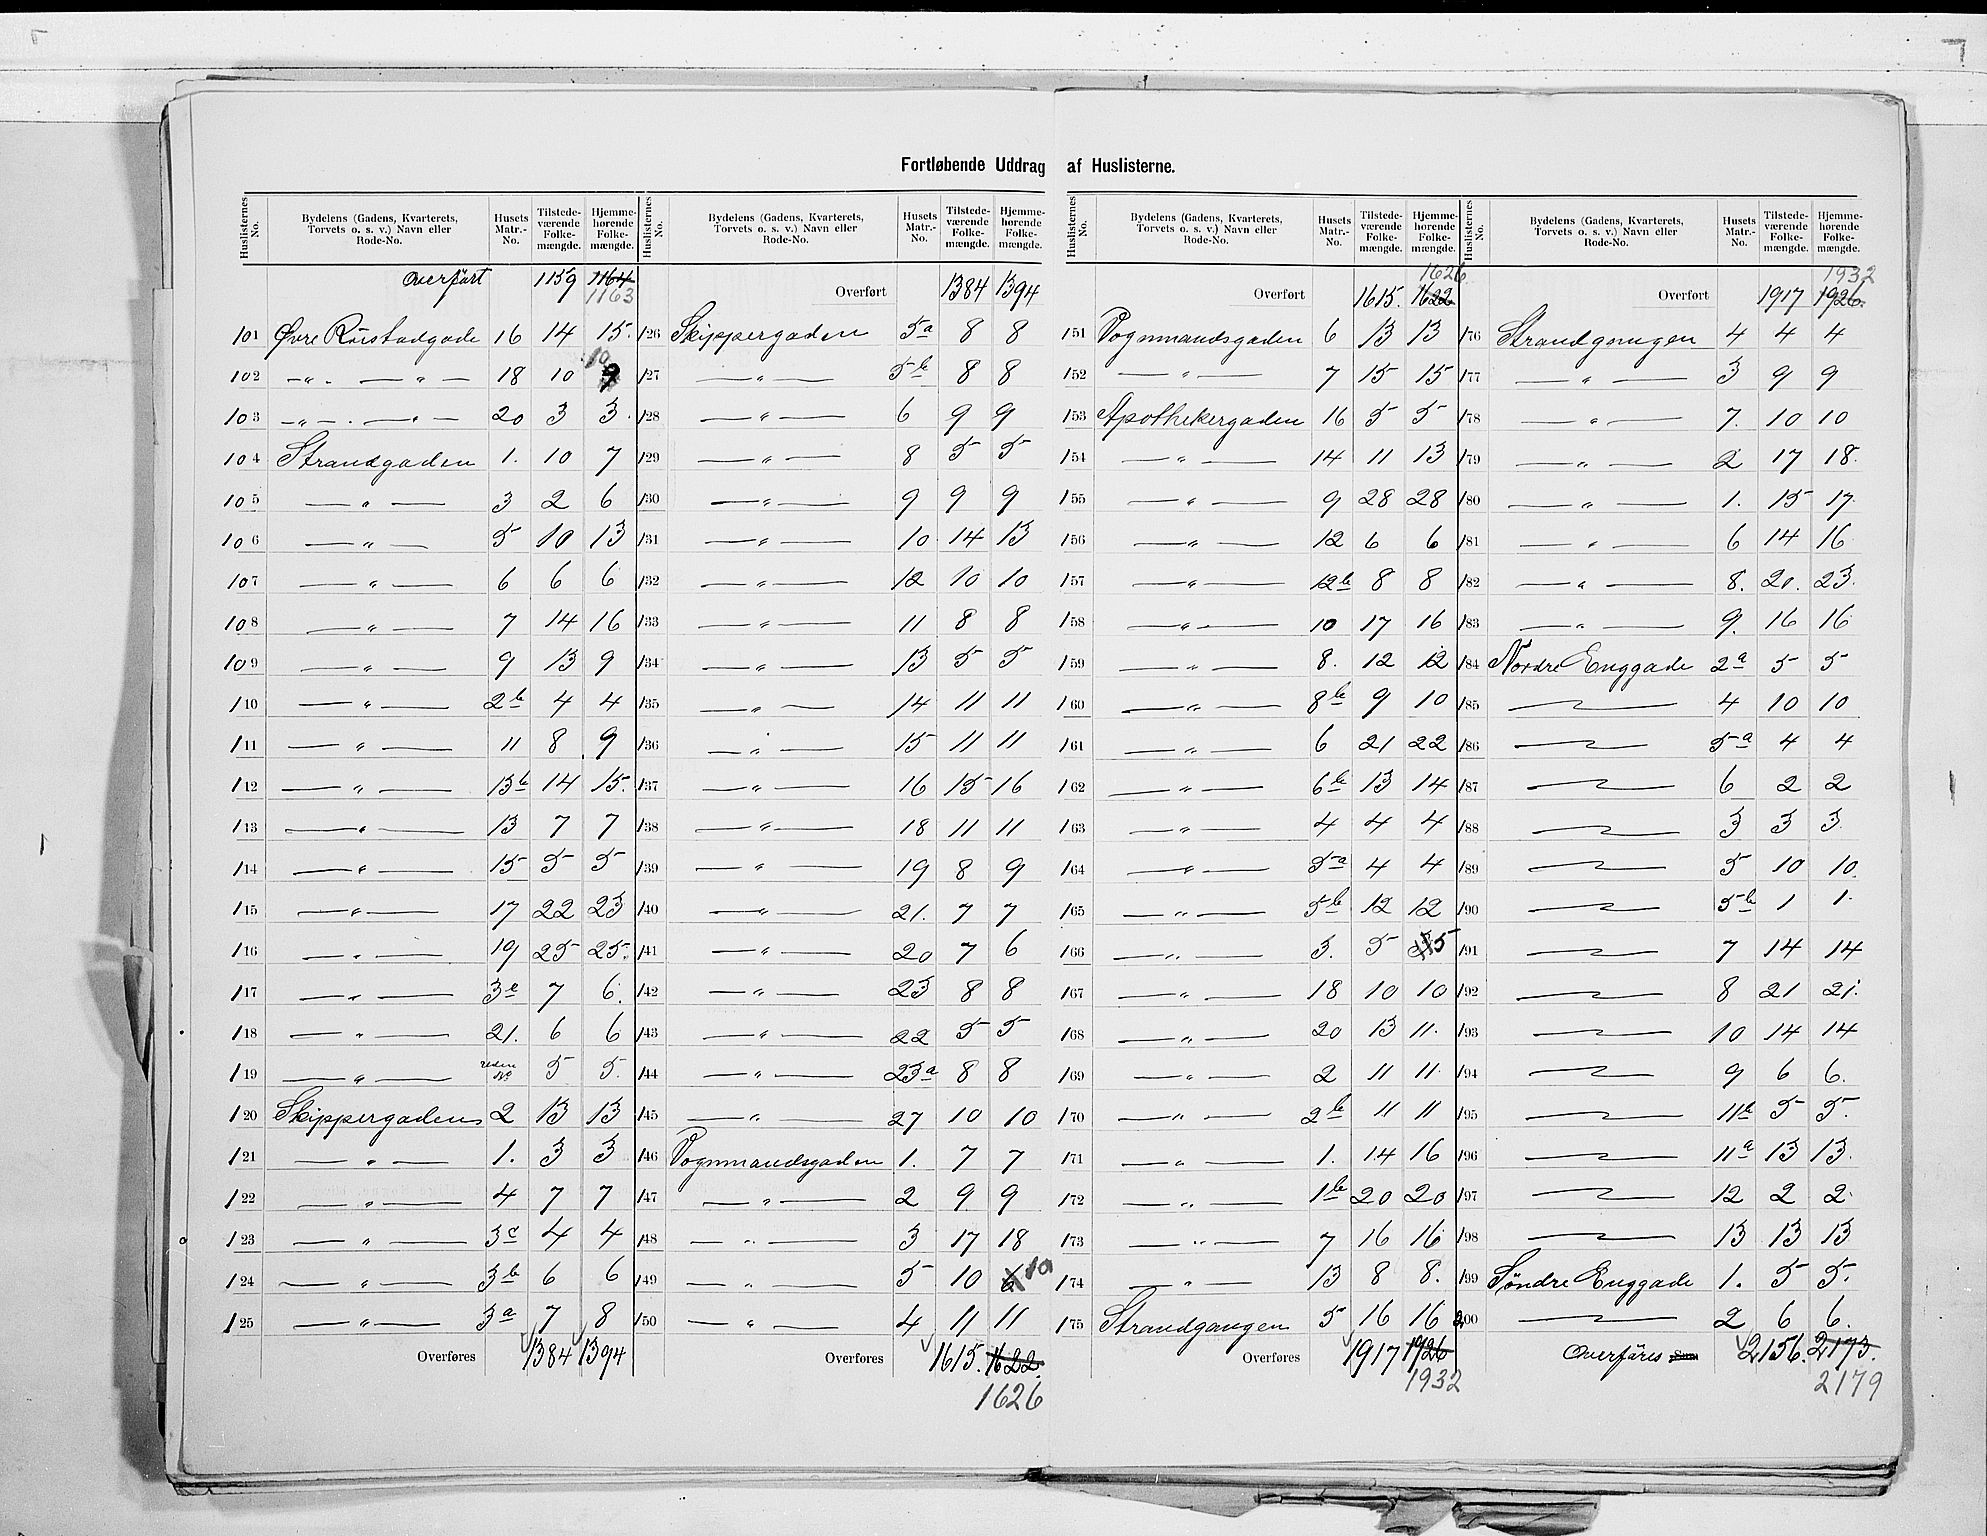 Fortløbende Uddrag af Huslisterne.
Huslisternes No. | Bydelens (Gadens, Kvarterets, Torvets o. s. v.) Navn eller Rode-No. | Husets Matr.-No. | Tilstede-værende Folke-mængde. | Hjemme-hørende Folke-mængde.
Overført 1159 1164 1163
101 Øvre Rørstadgade 16 14 15.
102 -„- — „ — 18 10 9 10
103 -„-. — „ — 20 3 3.
104 Strandgaden 1. 10 7
105 — „ — 3 2 6
106 — „ — 5 10 13
107 — „ — 6 6 6
108 — „ — 7 14 16
109 — „ — 9 13 9
110 — „ — 2b 4 4
111 — „ — 11 8 9
112 — „ — 13b 14 15.
113 — „ — 13 7 7
114 — „ — 15 5 5
115 — „ — 17 22 23
116 — „ — 19 25 25.
117 — „ — 3e 7 6.
118 — „ — 21. 6 6
119 — „ — uden No 5 5.
120 Skippergaden 2 13 13
121 — „ — 1. 3 3
122 — „ — 4 7 7
123 — „ — 3c 4 4
124 — „ — 3b 6 6
125 — „ — 3a 7 8
Overføres 1384 1394
Huslisternes No. | Bydelens (Gadens, Kvarterets, Torvets o. s. v.) Navn eller Rode-No. | Husets Matr.-No. | Tilstede-værende Folke-mængde. | Hjemme-hørende Folke-mængde.
Overført 1384 1394
126 Skippergaden 5a 8 8
127 — „ — 5b 8 8
128 — „ — 6 9 9
129 — „ — 8 5 5
130 — „ — 9 9 9
131 — „ — 10 14 13
132 — „ — 12 10 10
133 — „ — 11 8 8
134 — „ — 13 5 5
135 — „ — 14 11 11
136 — „ — 15 11 11
137 — „ — 16 15 16
138 — „ — 18 11 11
139 — „ — 19 8 9
140 — „ — 21. 7 7
141 — „ — 20 7 6
142 — „ — 23 8 8
143 — „ — 22 5 5
144 — „ — 23a 8 8
145 — „ — 27 10 10
146 Vognmandsgaden 1. 7 7
147 — „ — 2 9 9
148 — „ — 3 17 18
149 — „ — 5 10 6 10
150 — „ — 4 11 11
Overføres 1615. 1622.
1626
Huslisternes No. | Bydelens (Gadens, Kvarterets, Torvets o. s. v.) Navn eller Rode-No. | Husets Matr.-No. | Tilstede-værende Folke-mængde. | Hjemme-hørende Folke-mængde.
1626
Overført 1615. 1622
151 Vognmandsgaden 6 13 13
152 — „ — 7 15 15
153 Apothekergaden 16 5 5
154 — „ — 14 11 13
155 — „ — 9 28 28
156 — „ — 12 6 6
157 — „ — 12b 8 8
158 — „ — 10 17 16
159 — „ — 8. 12 12
160 — „ — 8b 9 10
161 — „ — 6 21 22
162 — „ — 6b 13 14
163 — „ — 4 4 4
164 — „ — 5a 4 4
165 — „ — 5b 12 12
166 — „ — 3. 5 5
167 — „ — 18 10 10
168 — „ — 20 13 11.
169 — „ — 2 11 11.
170 — „ — 2b 11 11
171 — „ — 1. 14 16
172 — „ — 1b 20 20
173 — „ — 7 16 16
174 — „ — 13 8 8.
175 Strandgangen 5 16 16
Overføres 1917 1926
1932
Huslisternes No. | Bydelens (Gadens, Kvarterets, Torvets o. s. v.) Navn eller Rode-No. | Husets Matr.-No. | Tilstede-værende Folke-mængde. | Hjemme-hørende Folke-mængde.
1932
Overført 1917 1926.
176 Strandgangen 4 4 4
177 — „ — 3 9 9
178 — „ — 7. 10 10
179 — „ — 2 17 18.
180 — „ — 1. 15 17.
181 — „ — 6 14 16
182 — „ — 8. 20. 23.
183 — „ — 9. 16 16
184 Nordre Enggade 2a 5 5
185 — 4 10 10
186 — 5a 4 4
187 — 6 2 2
188 — 3 3 3.
189 — 5 10 10.
190 — 5b 1 1.
191 — 7 14 14
192 — 8 21 21.
193 — 10 14 14
194 — 9 6 6.
195 — 11b 5 5.
196 — 11a 13 13.
197 — 12 2 2.
198 — 13 13 13
199 Søndre Enggade 1. 5 5.
200 — 2 6 6.
Overføres Sum 2156. 2173.
2179